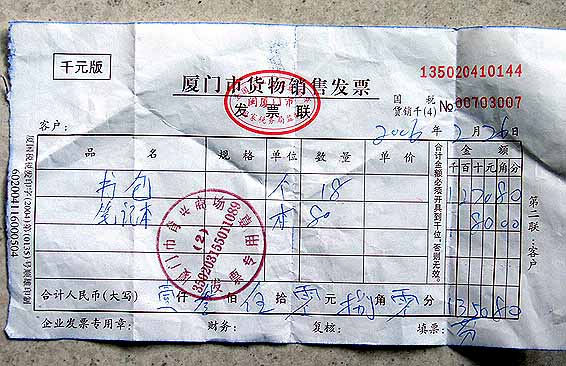 千元版
厦门市货物销售发票
发票联
135020410144
国税
货销千(4) №00703007
2006年2月26日
客户:
品名 规格 单位 数量 单价 金额
千百十元角分
合计金额必须开具到千位,否则无效。
书包 个 18 127080
笔记本 本 80 8000
厦门市 商场
(2)
350203155011089
发票专用章
合计人民币(大写) 壹仟叁佰伍拾零元捌角零分 135080
企业发票专用章: 财务: 复核: 填票:
第二联:客户
602004116000504